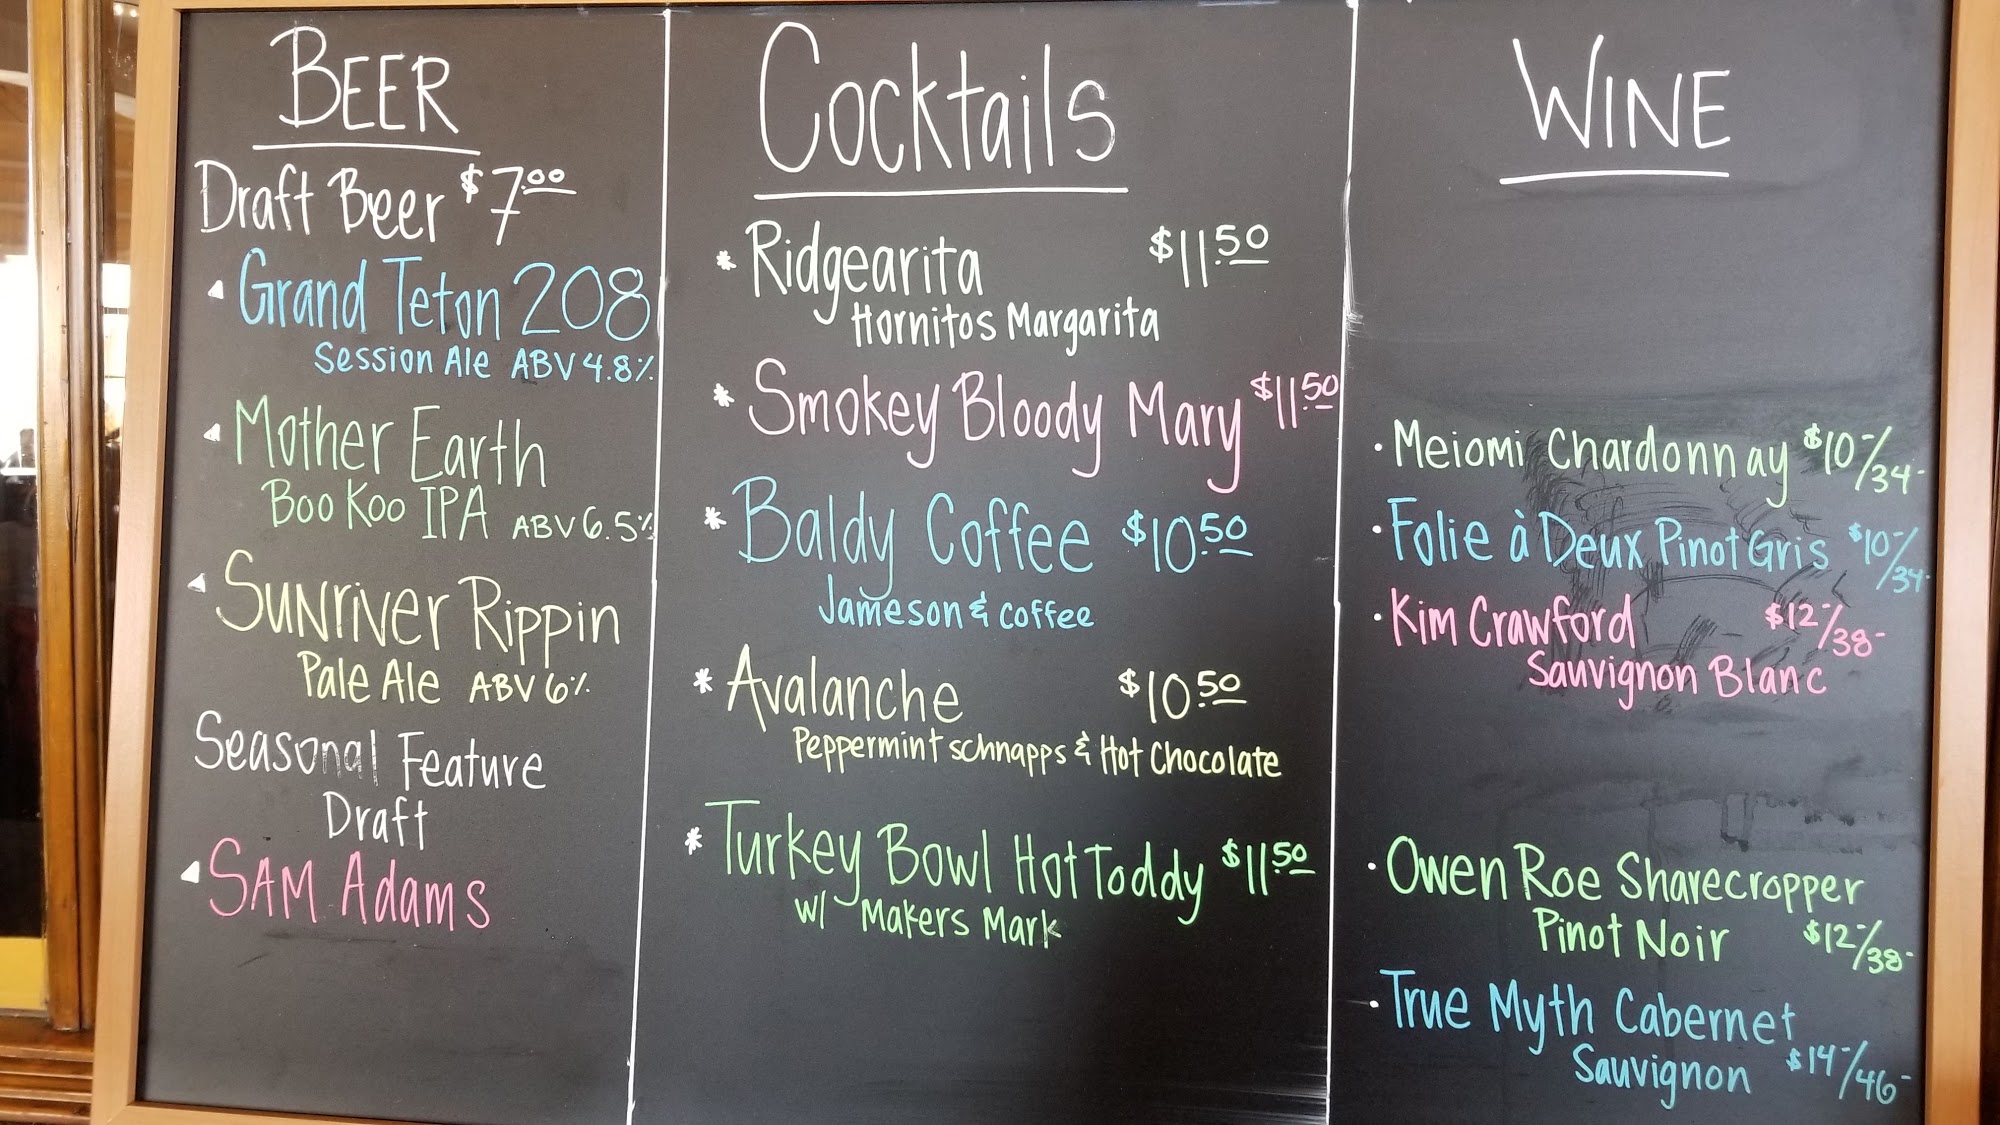 BEER
Draft Beer $7.00
Grand Teton 208
Session Ale ABV 4.8%
Mother Earth
Boo Koo IPA ABV 6.5%
Sunriver Rippin
Pale Ale ABV 6%
Seasonal Feature
Draft
SAM Adams
Cocktails
* Ridgearita $11.50
Hornitos Margarita
* Smokey Bloody Mary $11.50
* Baldy Coffee $10.50
Jameson & coffee
* Avalanche $10.50
Peppermint schnapps & Hot Chocolate
* Turkey Bowl Hot Toddy $11.50
w/ Makers Mark
WINE
· Meiomi Chardonnay $10-/34-
· Folie à Deux Pinot Gris $10-/34-
· Kim Crawford $12-/38-
Sauvignon Blanc
· Owen Roe Sharecropper
Pinot Noir $12-/38-
· True Myth Cabernet
Sauvignon $14-/46-